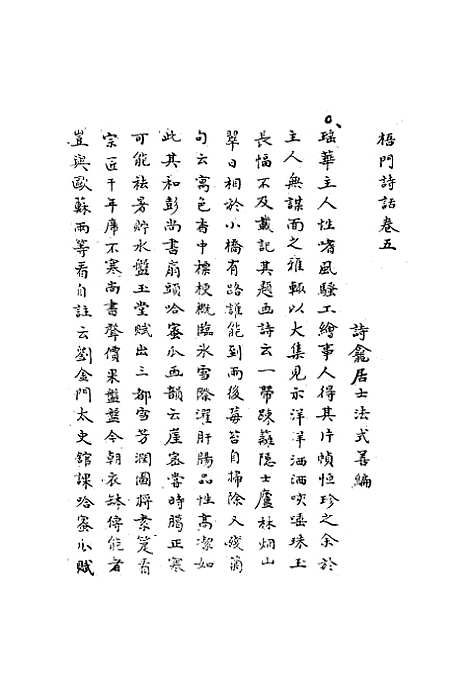 梧門詩話卷五
詩龕居士法式善編
瑤華主人性嗜風騷工繪事人得其片幀恒珍之余於
主人無謀面之雅輒以大集見示洋洋洒洒唾珠玉
長幅不及載記其題画詩云一帶疎籬隐士廬林烟山
翠日相於小橋有路誰能到雨後莓苔自掃除又殘菊
句云寓色香中標梗概臨氷雪際濯肝腸品性高潔如
此其和彭尚書扇頭哈蜜瓜西韻云崖蜜當時臈正寒
可能祛暑貯水盤玉堂賦出三都雪芳潤圖将素箑看
宗匠千年席不寒尚書聲價果盤盤今朝衣缽傳能者
豈與歐蘇兩等看自註云劉金門太史舘課哈蜜瓜賦